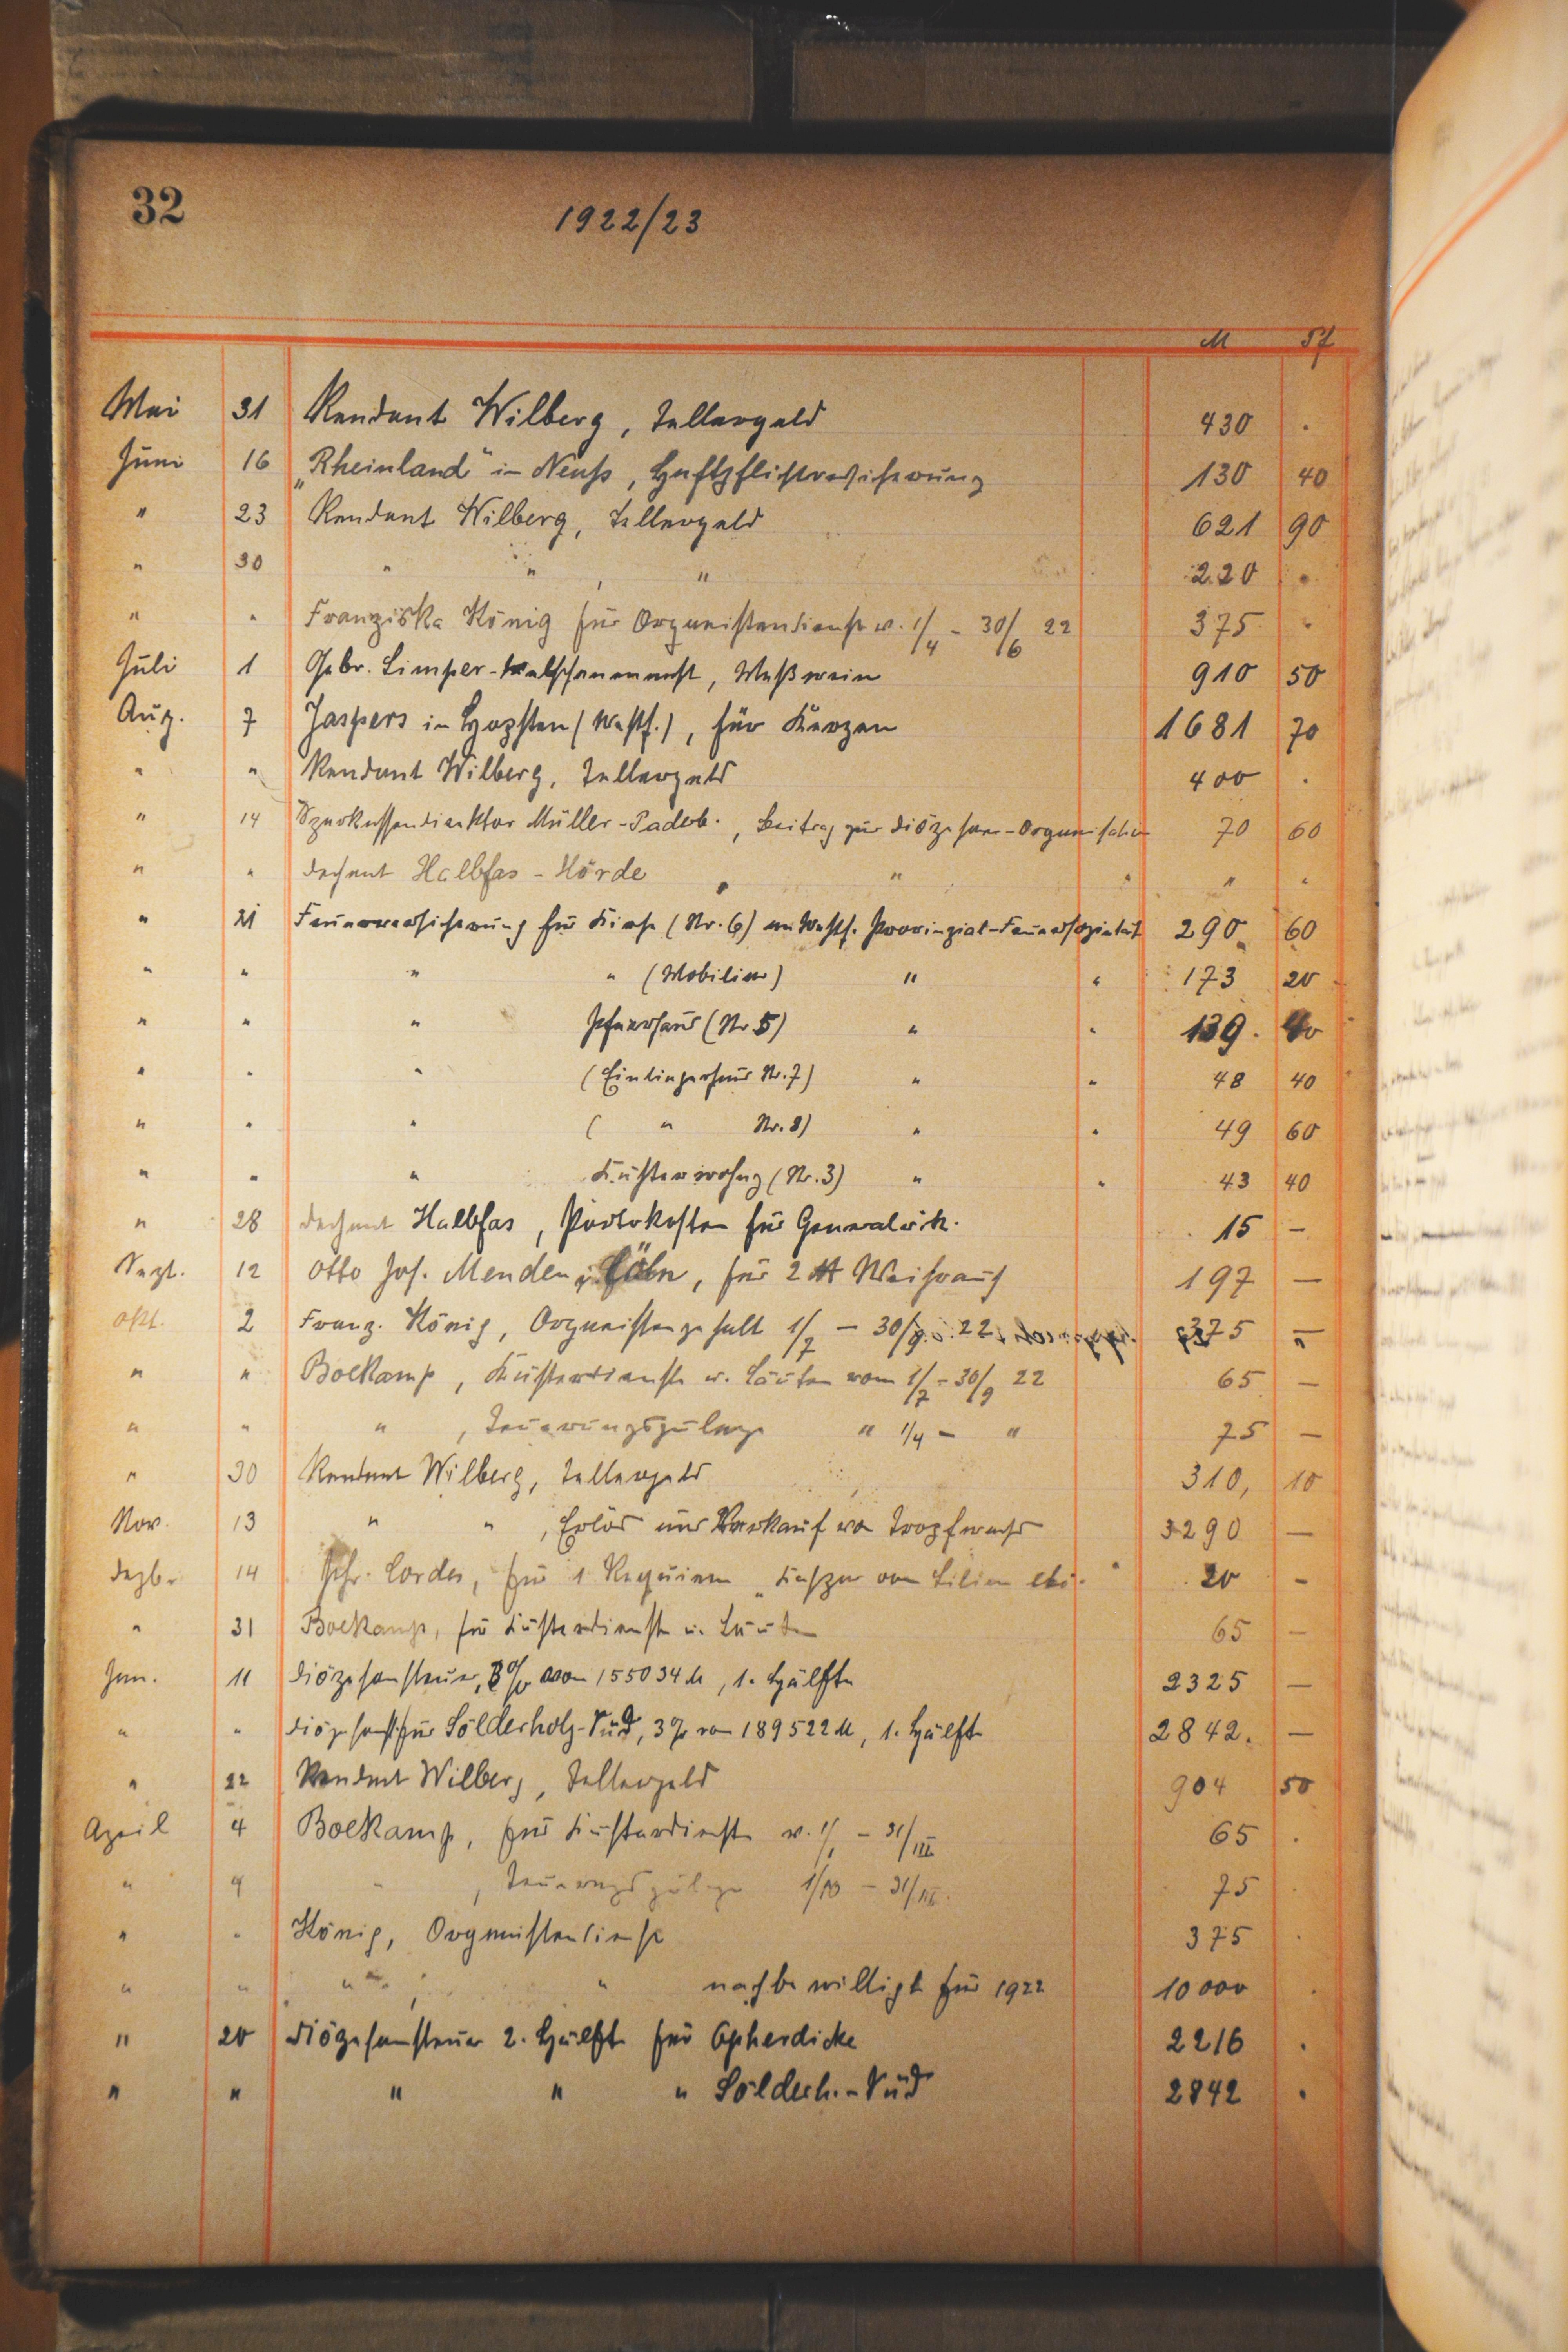 32
1922/23
M Pf
Mai 31 Rendant Wilberg, Tellergeld 430 .
Juni 16 „Rheinland" in Neuß, Haftpflichtversicherung 130 40
" 23 Rendant Wilberg, Tellergeld 621 90
" 30 " " , " 220 .
" " Franziska König für Organistendienst v. 1/4 - 30/6 22 375 "
Juli 1 Gebr. Limper- , Meßwein 910 50
Aug. 7 Jaspers in Hopsten (Westf.), für Kerzen 1681 70
" " Rendant Wilberg, Tellergeld 400 .
" 14 Sparkassendirektor Müller-Paderb., Beitrag zur Diözesan- 70 60
" " Dechant Halbfas - Hörde " " " "
" 21 Feuerversicherung für Kirche (Nr. 6) an Westf. Provinzial-Feuersozietät 290 60
" " " " (Mobiliar) " " 173 20
" " " Pfarrhaus (Nr 5) " " 139. 40
" " " (Einliegerhaus Nr. 7) " " 48 40
" " " ( " Nr. 8) " " 49 60
" " " Küsterwohng (Nr. 3) " " 43 40
" 28 Dechant Halbfas, Portokosten für Generalvik. 15 -
Sept. 12 Otto Jos. Menden, Cöln, für 2 ℔ Weihrauch 197 —
Okt. 2 Franz. König, Organistengehalt 1/7 — 30/9 22 375 —
" " Boekamp, Küsterdienste u. Läuten vom 1/7 - 30/9 22 65 —
" " " , Teuerungszulage " 1/4 - " 75 —
" 30 Rendant Wilberg, Tellergeld 310, 10
Nov. 13 " " , Erlös aus Verkauf von Tropfwachs 3290 —
Dezbr 14 Cordes, für 1 Requiem 20 -
" 31 Boekamp, für Küsterdienst u. Läuten 65 —
Jan. 11 Diözesansteuer, 3% von 155034 M, 1. Hälfte 2325 —
" " Diözesanst. für Sölderholz-Süd, 3% von 189522 M, 1. Hälfte 2842. —
" 22 Rendant Wilberg, Tellergeld 904 50
April 4 Boekamp, für Küsterdienste v. 1/1 - 31/III 65 .
" 4 " , Teuerungszulage 1/10 - 31/III. 75
" " König, Organistendienst 375 .
" " " , " nachbewilligt für 1922 10000 .
" 20 Diözesansteuer 2. Hälfte für Opherdicke 2216 .
" " " " " Sölderh.-Süd 2842 .